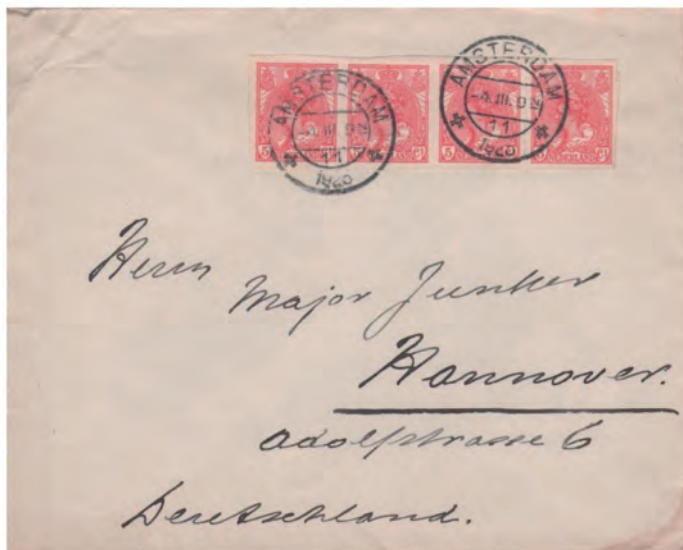 AMSTERDAM
-4.III.9N
11
1920
AMSTERDAM
-4.III.9N
11
1920
5
NEDERLAND
Herrn
Major Junker
Hannover.
Adolfstrasse 6
Deutschland.